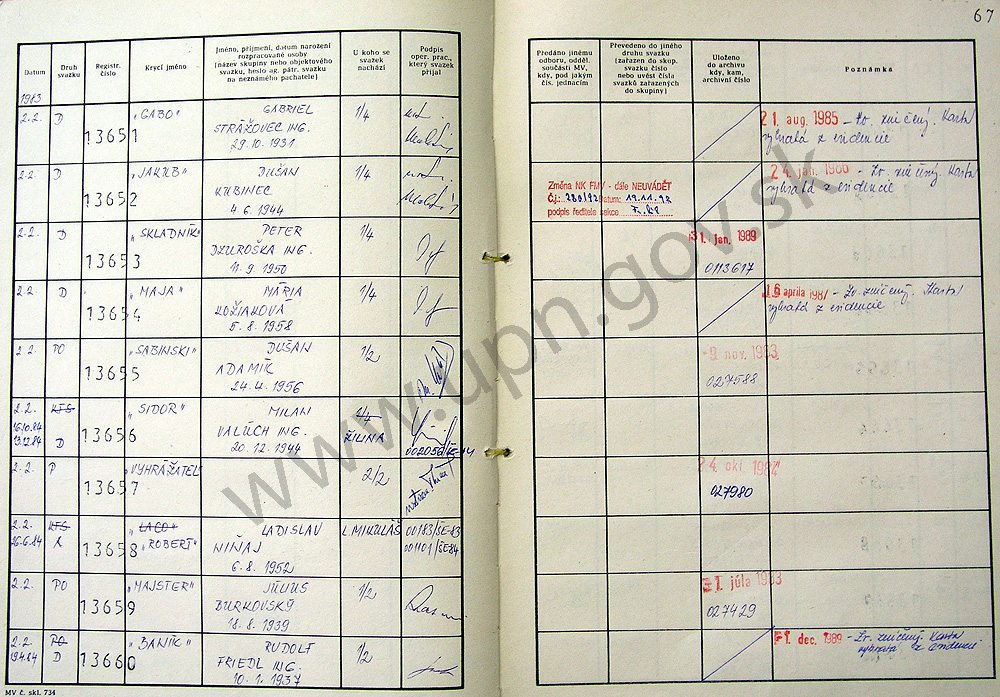 67
Datum
Druh svazku
Registr. číslo
Krycí jméno
Jméno, příjmení, datum narození
rozpracované osoby
(název skupiny nebo objektového
svazku, heslo ag. pátr. svazku
na neznámého pachatele)
U koho se
svazek
nachází
Podpis
oper. prac.,
který svazek
přijal
Předáno jinému
odboru, odděl.
součásti MV,
kdy, pod jakým
čís. jednacím
Převedeno do jiného
druhu svazku
(zařazen do skup.
svazku číslo
nebo uvést čísla
svazků zařazených
do skupiny)
Uloženo
do archivu
kdy, kam,
archivní číslo
Poznámka
1983
2.2. D 13651 "GABO" GABRIEL 1/4
STRÁŽOVEC ING.
29.10.1931
21. aug. 1985 - Zv. zničený. Karta
vybratá z evidencie
2.2. D 13652 "JAKUB" DUŠAN 1/4
KUBINEC
4.6.1944
Změna NK FMV - dále NEUVÁDĚT
Č.j.: 280/92 datum: 19.11.92
podpis ředitele sekce
24. jan. 1986 - Zv. zničený. Karta
vybratá z evidencie
2.2. D 13653 "SKLADNÍK" PETER 1/4
DZUROŠKA ING.
11.9.1950
31. jan. 1989
0113617
2.2 D 13654 "MAJA" MÁRIA 1/4
KOŽIAKOVÁ
5.8.1958
16 apríla 1987 - Zv. zničený. Karta
vybratá z evidencie
2.2. PO 13655 "SABINSKI" DUŠAN 1/2
ADAMÍK
24.4.1956
9. nov. 1983
027588
2.2. KTS 13656 "SIDOR" MILAN 1/4
16.10.84
13.12.84 D VALÚCH ING. ŽILINA
20.12.1944
2.2. P 13657 "VYHRÁŽATEĽ" 2/2
24. okt. 1984
027980
2.2. KTS 13658 "LACO" LADISLAV L. MIKULÁŠ 00183/ŠE-83
26.6.84 A "ROBERT" NIŇAJ 001101/ŠE-84
6.8.1952
2.2. PO 13659 "MAJSTER" JÚLIUS 1/2
BURKOVSKÝ
18.8.1939
1. júla 1983
027429
2.2. PO 13660 "BANÍK" RUDOLF 1/2
19.4.84 D FRIEDL ING.
10.1.1937
1. dec. 1989 - Zv. zničený. Karta
vybratá z evidencie
MV č. skl. 734
www.upn.gov.sk